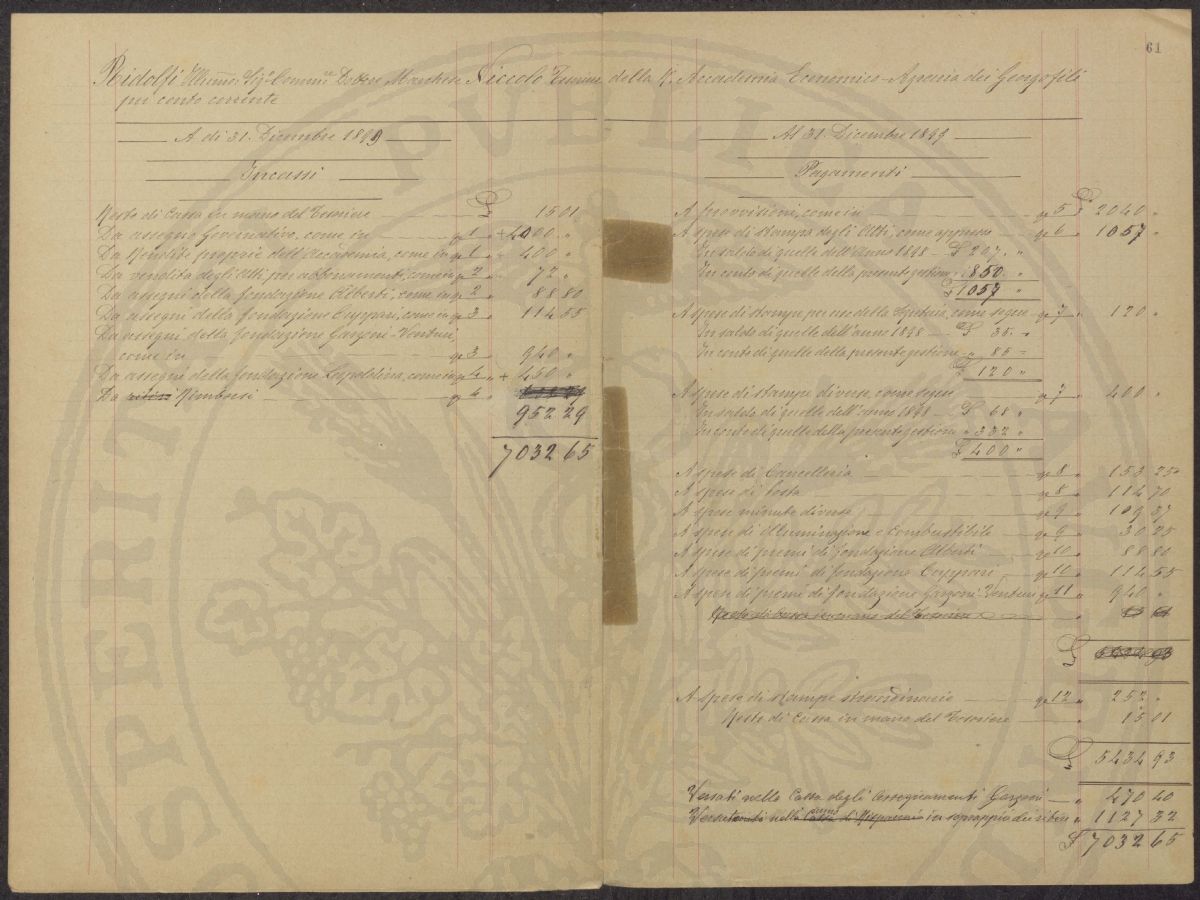 61
Ridolfi Illmo Sigr Comme Dottore Marchese Niccolò della R. Accademia Economico-Agraria dei Georgofili
per conto corrente
A dì 31. Dicembre 1899
Incassi
Resto di Cassa in mano del Tesoriere £ 15 01
Da assegno Governativo, come in 1 + 4000 "
Da Rendite proprie dell'Accademia, come in 1 " 400 "
Da vendita degli Atti per abbonamenti, come in 2 " 72 "
Da assegni della fondazione Alberti, come in 2 " 88 80
Da assegni della fondazione Cuppari, come in 3 " 114 55
Da assegni della fondazione Gazzeri-Venturi,
come in 3 " 940 "
Da assegni della fondazione Leopoldina, come in 4 + 450 "
Da Rimborsi 4 "
952 29
7032 65
Al 31. Dicembre 1899
Pagamenti
A provvisioni, come in 5 £ 2040 "
A spese di stampa degli Atti, come appresso 6 " 1057 "
In saldo di quelle dell'anno 1898 £ 207. "
In conto di quelle della presente gestione " 850 "
£ 1057 "
A spese di stampe per uso della Segreteria, come segue 7 " 120 "
In saldo di quelle dell'anno 1898 £ 35. "
In conto di quelle della presente gestione " 85 "
£ 120 "
A spese di stampe diverse, come segue 7 " 400 "
In saldo di quelle dell'anno 1898 £ 68 "
In conto di quelle della presente gestione " 332 "
£ 400 "
A spese di Cancelleria 8 " 153 25
A spese di Posta 8 " 114 70
A spese minute diverse 9 " 109 37
A spese di illuminazione e Combustibile 9 " 30 25
A spese di premi di fondazione Alberti 10 " 88 80
A spese di premi di fondazione Cuppari 10 " 114 55
A spese di premi di fondazione Gazzeri Venturi 11 " 940 "
Resto di cassa in mano del Tesoriere
£
A spese di stampe straordinarie 12 " 252 "
Resto di Cassa in mano del Tesoriere " 15 01
£ 5434 93
Versati nella Cassa degli Assegnamenti " 470 40
nella Cassa di Risparmio in " 1127 32
£ 7032 65
PUBLICA
PROSPERITATI